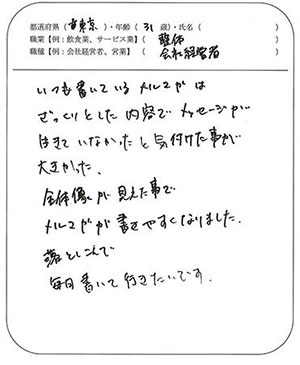 都道府県（東京）・年齢（31歳）・氏名（　　　）
職業【例：飲食業、サービス業】（整体）
職種【例：会社経営者、営業】（会社経営者）
いつも書いているメルマガは
ざっくりとした内容でメッセージが
はきていなかったと気付けた事が
大きかった、
全体像が見えた事で
メルマガが書きやすくなりました．
落としこんで
毎日書いて行きたいです．